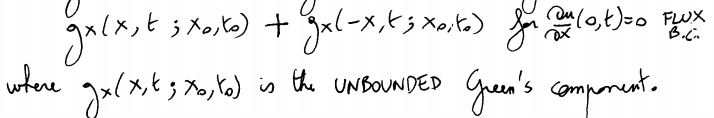 gx(x,t ; x₀,t₀) + gx(-x,t ; x₀,t₀) for ∂u/∂x (0,t)=0 FLUX B.C.
where gx(x,t ; x₀,t₀) is the UNBOUNDED Green's component.